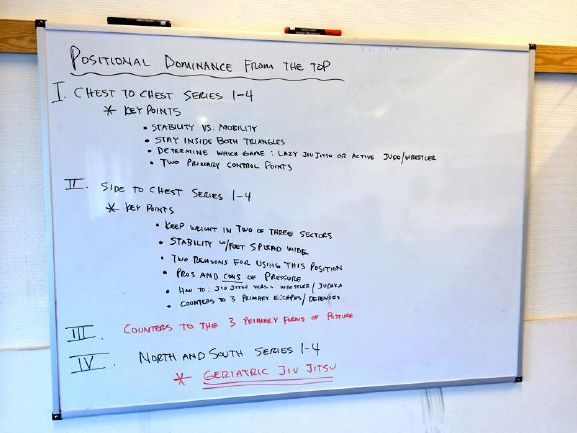 POSITIONAL DOMINANCE FROM THE TOP
I. CHEST TO CHEST SERIES 1-4
* KEY POINTS
• STABILITY VS. MOBILITY
• STAY INSIDE BOTH TRIANGLES
• DETERMINE WHICH GAME: LAZY JIU JITSU OR ACTIVE JUDO/WRESTLER
• TWO PRIMARY CONTROL POINTS
II. SIDE TO CHEST SERIES 1-4
* KEY POINTS
• KEEP WEIGHT IN TWO OF THREE SECTORS
• STABILITY W/FEET SPREAD WIDE
• TWO REASONS FOR USING THIS POSITION
• PROS AND CONS OF PRESSURE
• HOW TO: JIU JITSU WRESTLER/JUDOKA
• COUNTERS TO 3 PRIMARY ESCAPES/DEFENSES
III. COUNTERS TO THE 3 PRIMARY FORMS OF POSTURE
IV. NORTH AND SOUTH SERIES 1-4
* GERIATRIC JIU JITSU